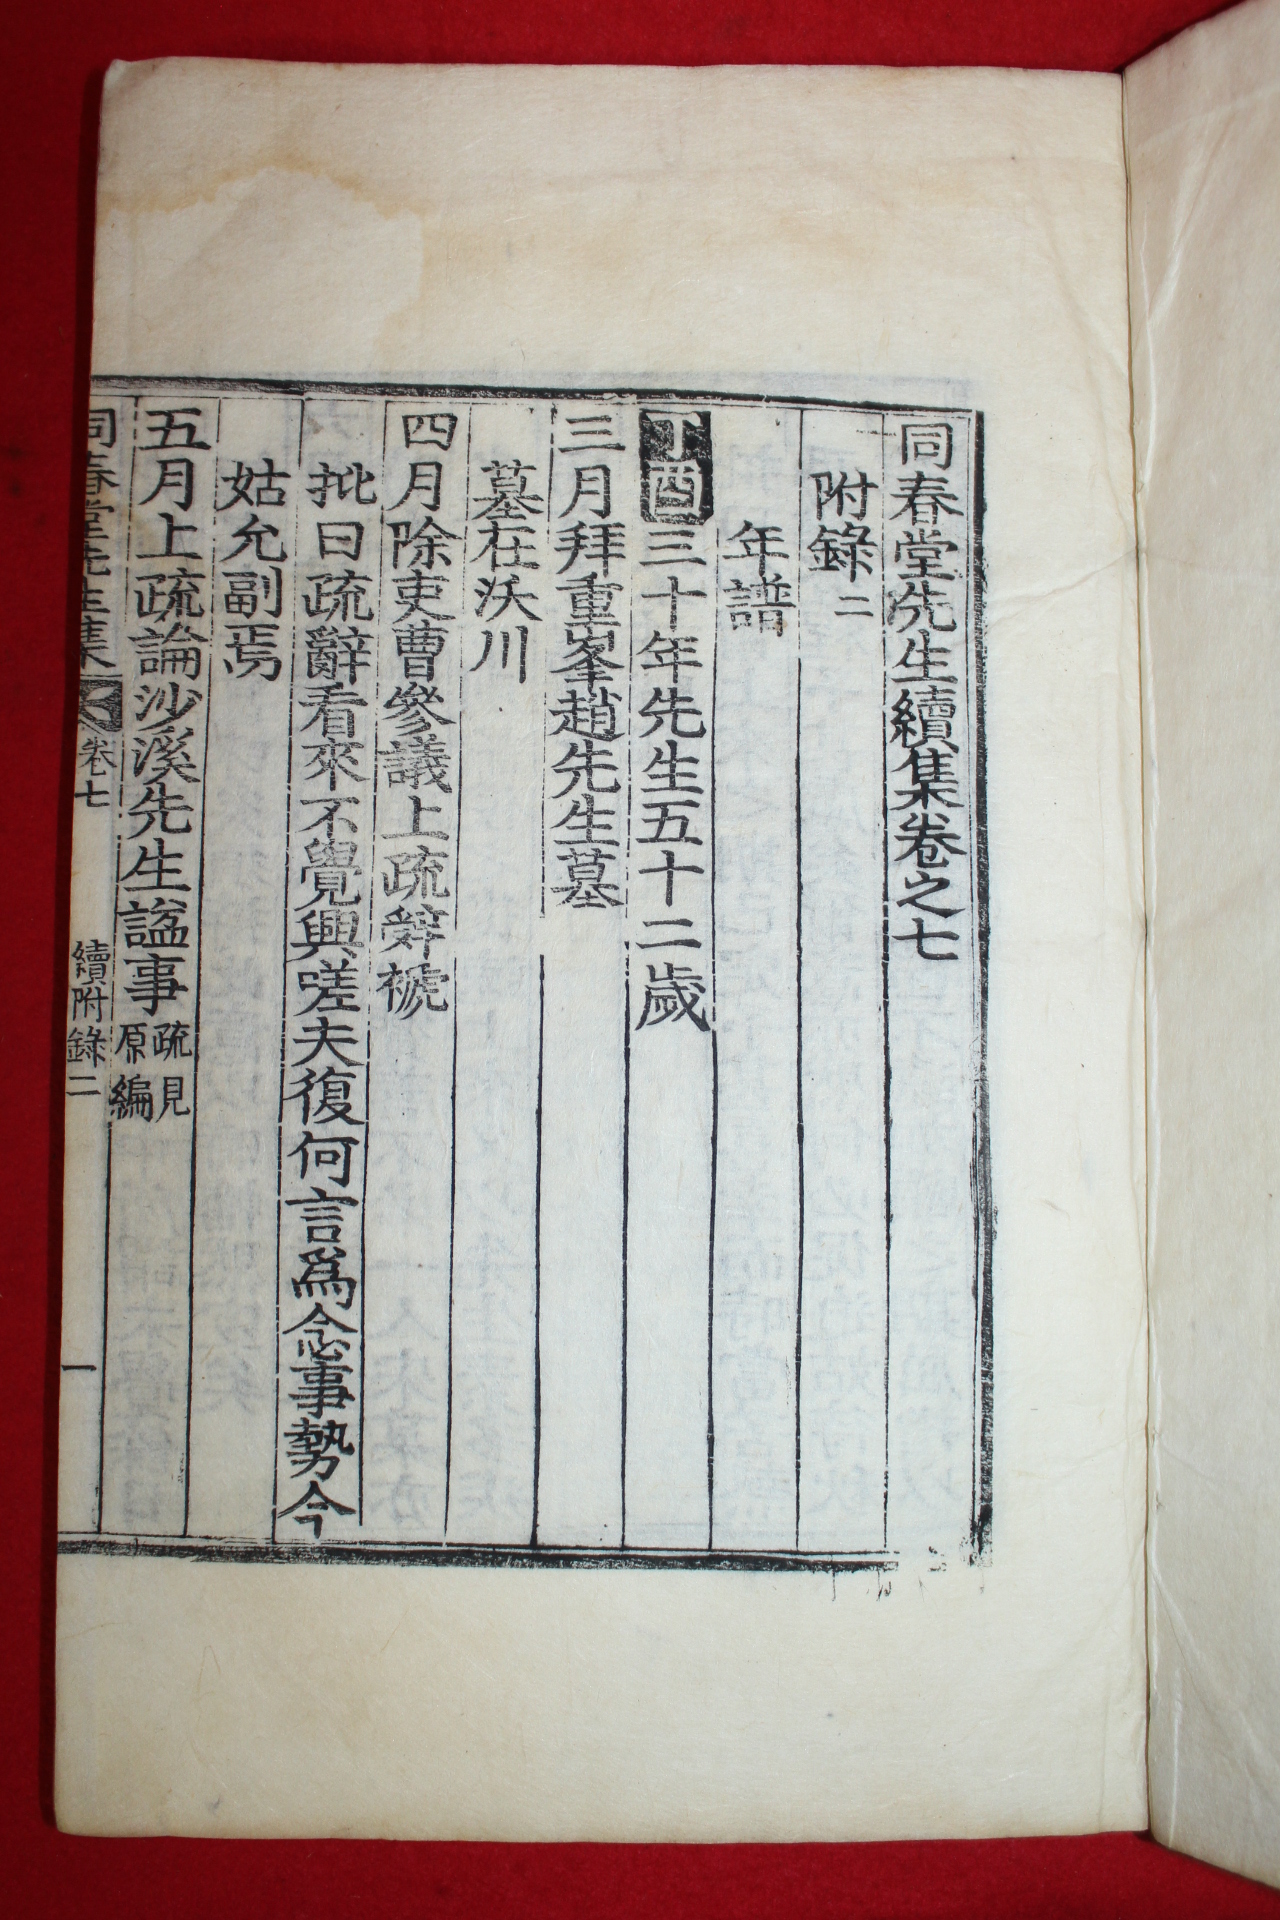 同春堂先生續集卷之七
附錄二
年譜
丁酉三十年先生五十二歲
三月拜重峯趙先生墓
墓在沃川
四月除吏曹參議上疏辭褫
批曰疏辭看來不覺興嗟夫復何言爲念事勢今
姑允副焉
五月上疏論沙溪先生諡事疏見原編
同春堂先生集 卷七 續附錄二 一